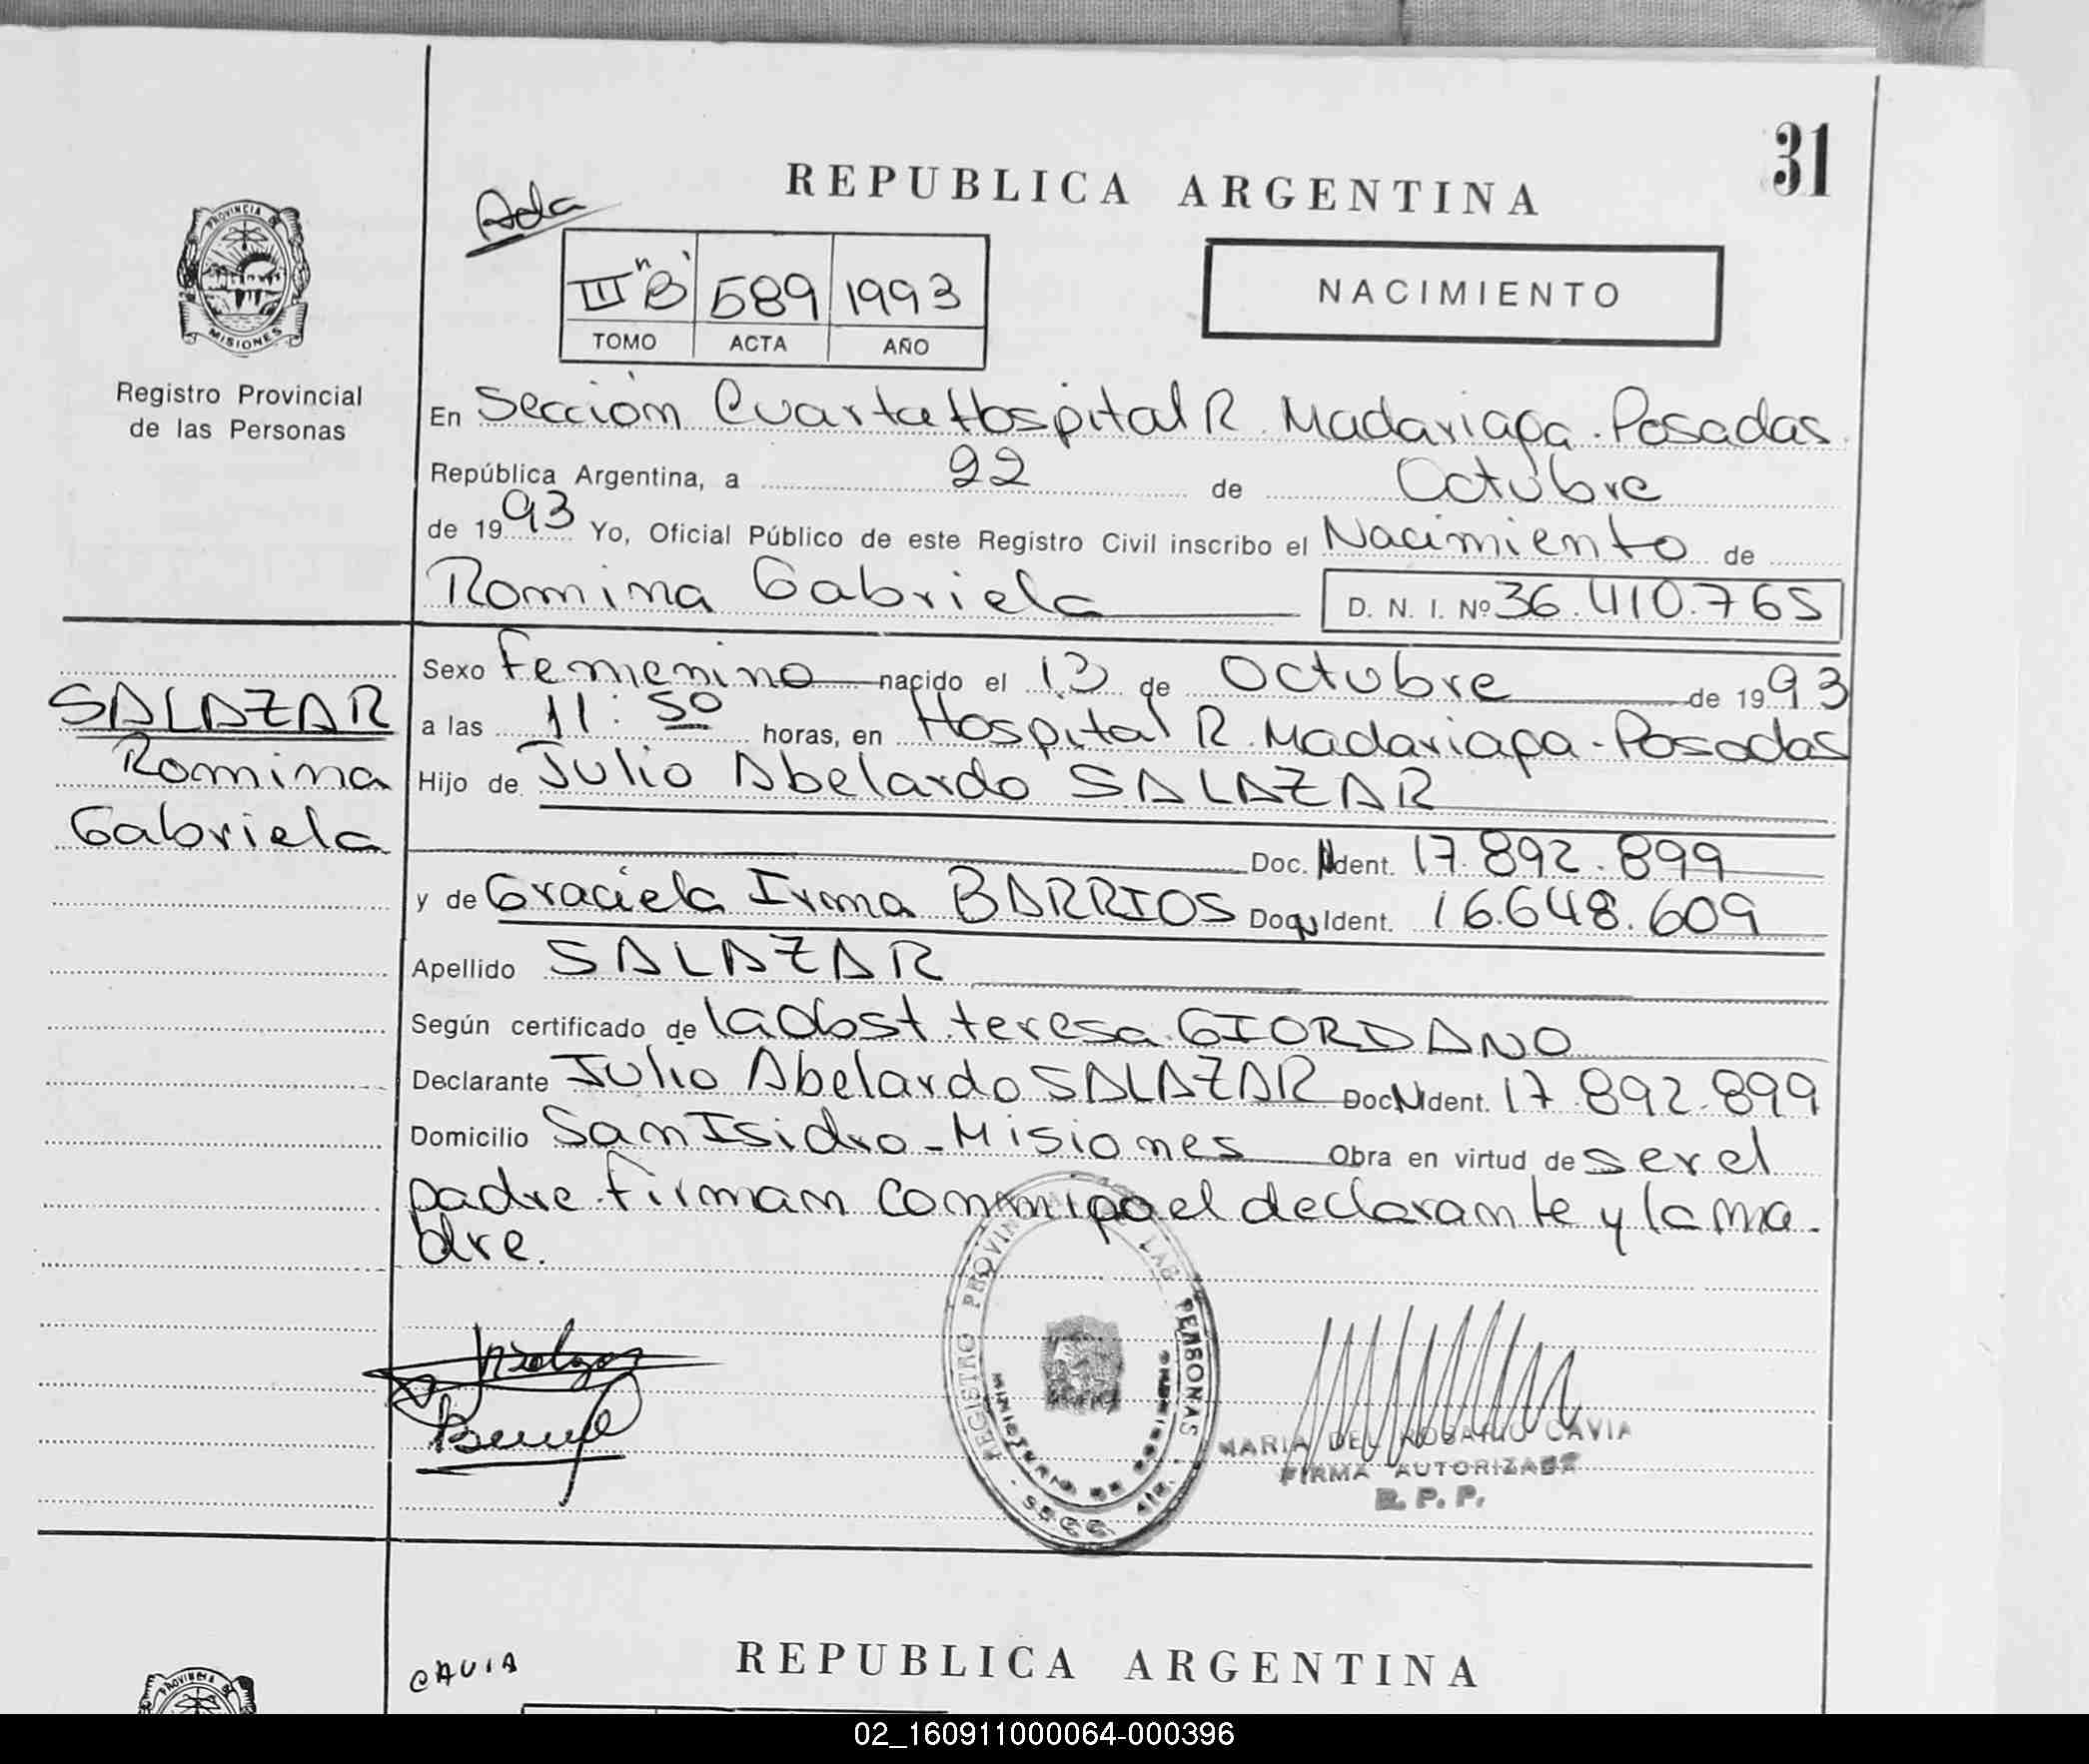 31
REPUBLICA ARGENTINA
Ada
III "B" 589 1993
TOMO ACTA AÑO
NACIMIENTO
PROVINCIA DE MISIONES
Registro Provincial
de las Personas
En Sección Cuarta Hospital R. Madariaga. Posadas
República Argentina, a 22 de Octubre
de 1993 Yo, Oficial Público de este Registro Civil inscribo el Nacimiento de
Romina Gabriela D. N. I. Nº 36.410.765
Sexo Femenino nacido el 13 de Octubre de 1993
SALAZAR
Romina
Gabriela
a las 11:50 horas, en Hospital R. Madariaga - Posadas
Hijo de Julio Abelardo SALAZAR
Doc. Ident. 17.892.899
y de Graciela Irma BARRIOS Doc. Ident. 16.648.609
Apellido SALAZAR
Según certificado de la Obst. teresa GIORDANO
Declarante Julio Abelardo SALAZAR Doc. Ident. 17.892.899
Domicilio San Isidro - Misiones Obra en virtud de ser el
padre. Firman conmigo el declarante y la ma-
dre.
REGISTRO PROVINCIAL DE LAS PERSONAS
MINISTERIO DE GOBIERNO
MARIA DEL ROSARIO CAVIA
FIRMA AUTORIZADA
R. P. P.
CAVIA
REPUBLICA ARGENTINA
PROVINCIA
02_160911000064-000396